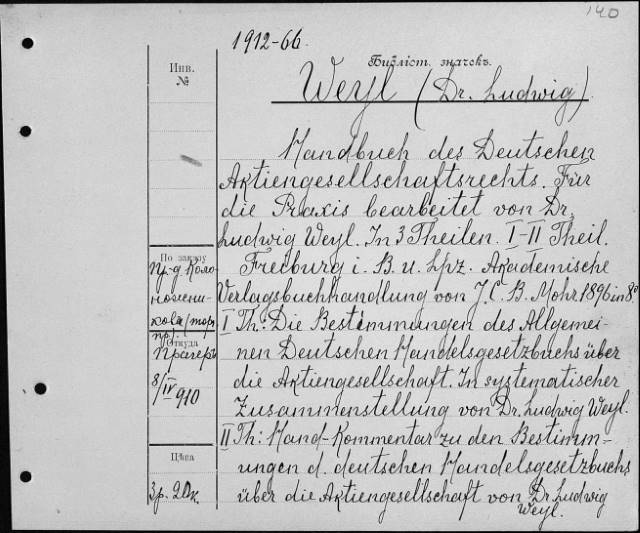 140
1912-66.
Библіот. значекъ.
Weyl (Dr. Ludwig)
Инв.
№
Handbuch des Deutschen
Aktiengesellschaftsrechts. Für
die Praxis bearbeitet von Dr.
Ludwig Weyl. In 3 Theilen. I-II Theil.
Freiburg i. B. u. Lpz. Akademische
Verlagsbuchhandlung von J. C. B. Mohr. 1896 in 8º
I Th: Die Bestimmungen des Allgemei-
nen Deutschen Handelsgesetzbuchs über
die Aktiengesellschaft. In systematischer
Zusammenstellung von Dr. Ludwig Weyl.
II Th: Hand-Kommentar zu den Bestimm-
ungen d. deutschen Handelsgesetzbuchs
über die Aktiengesellschaft von Dr. Ludwig
Weyl.
По заказу
Пр-д Коло
ножни-
кова (торг
пр).
Откуда
Прагеръ
8/IV 910
Цѣна
3р. 20к.